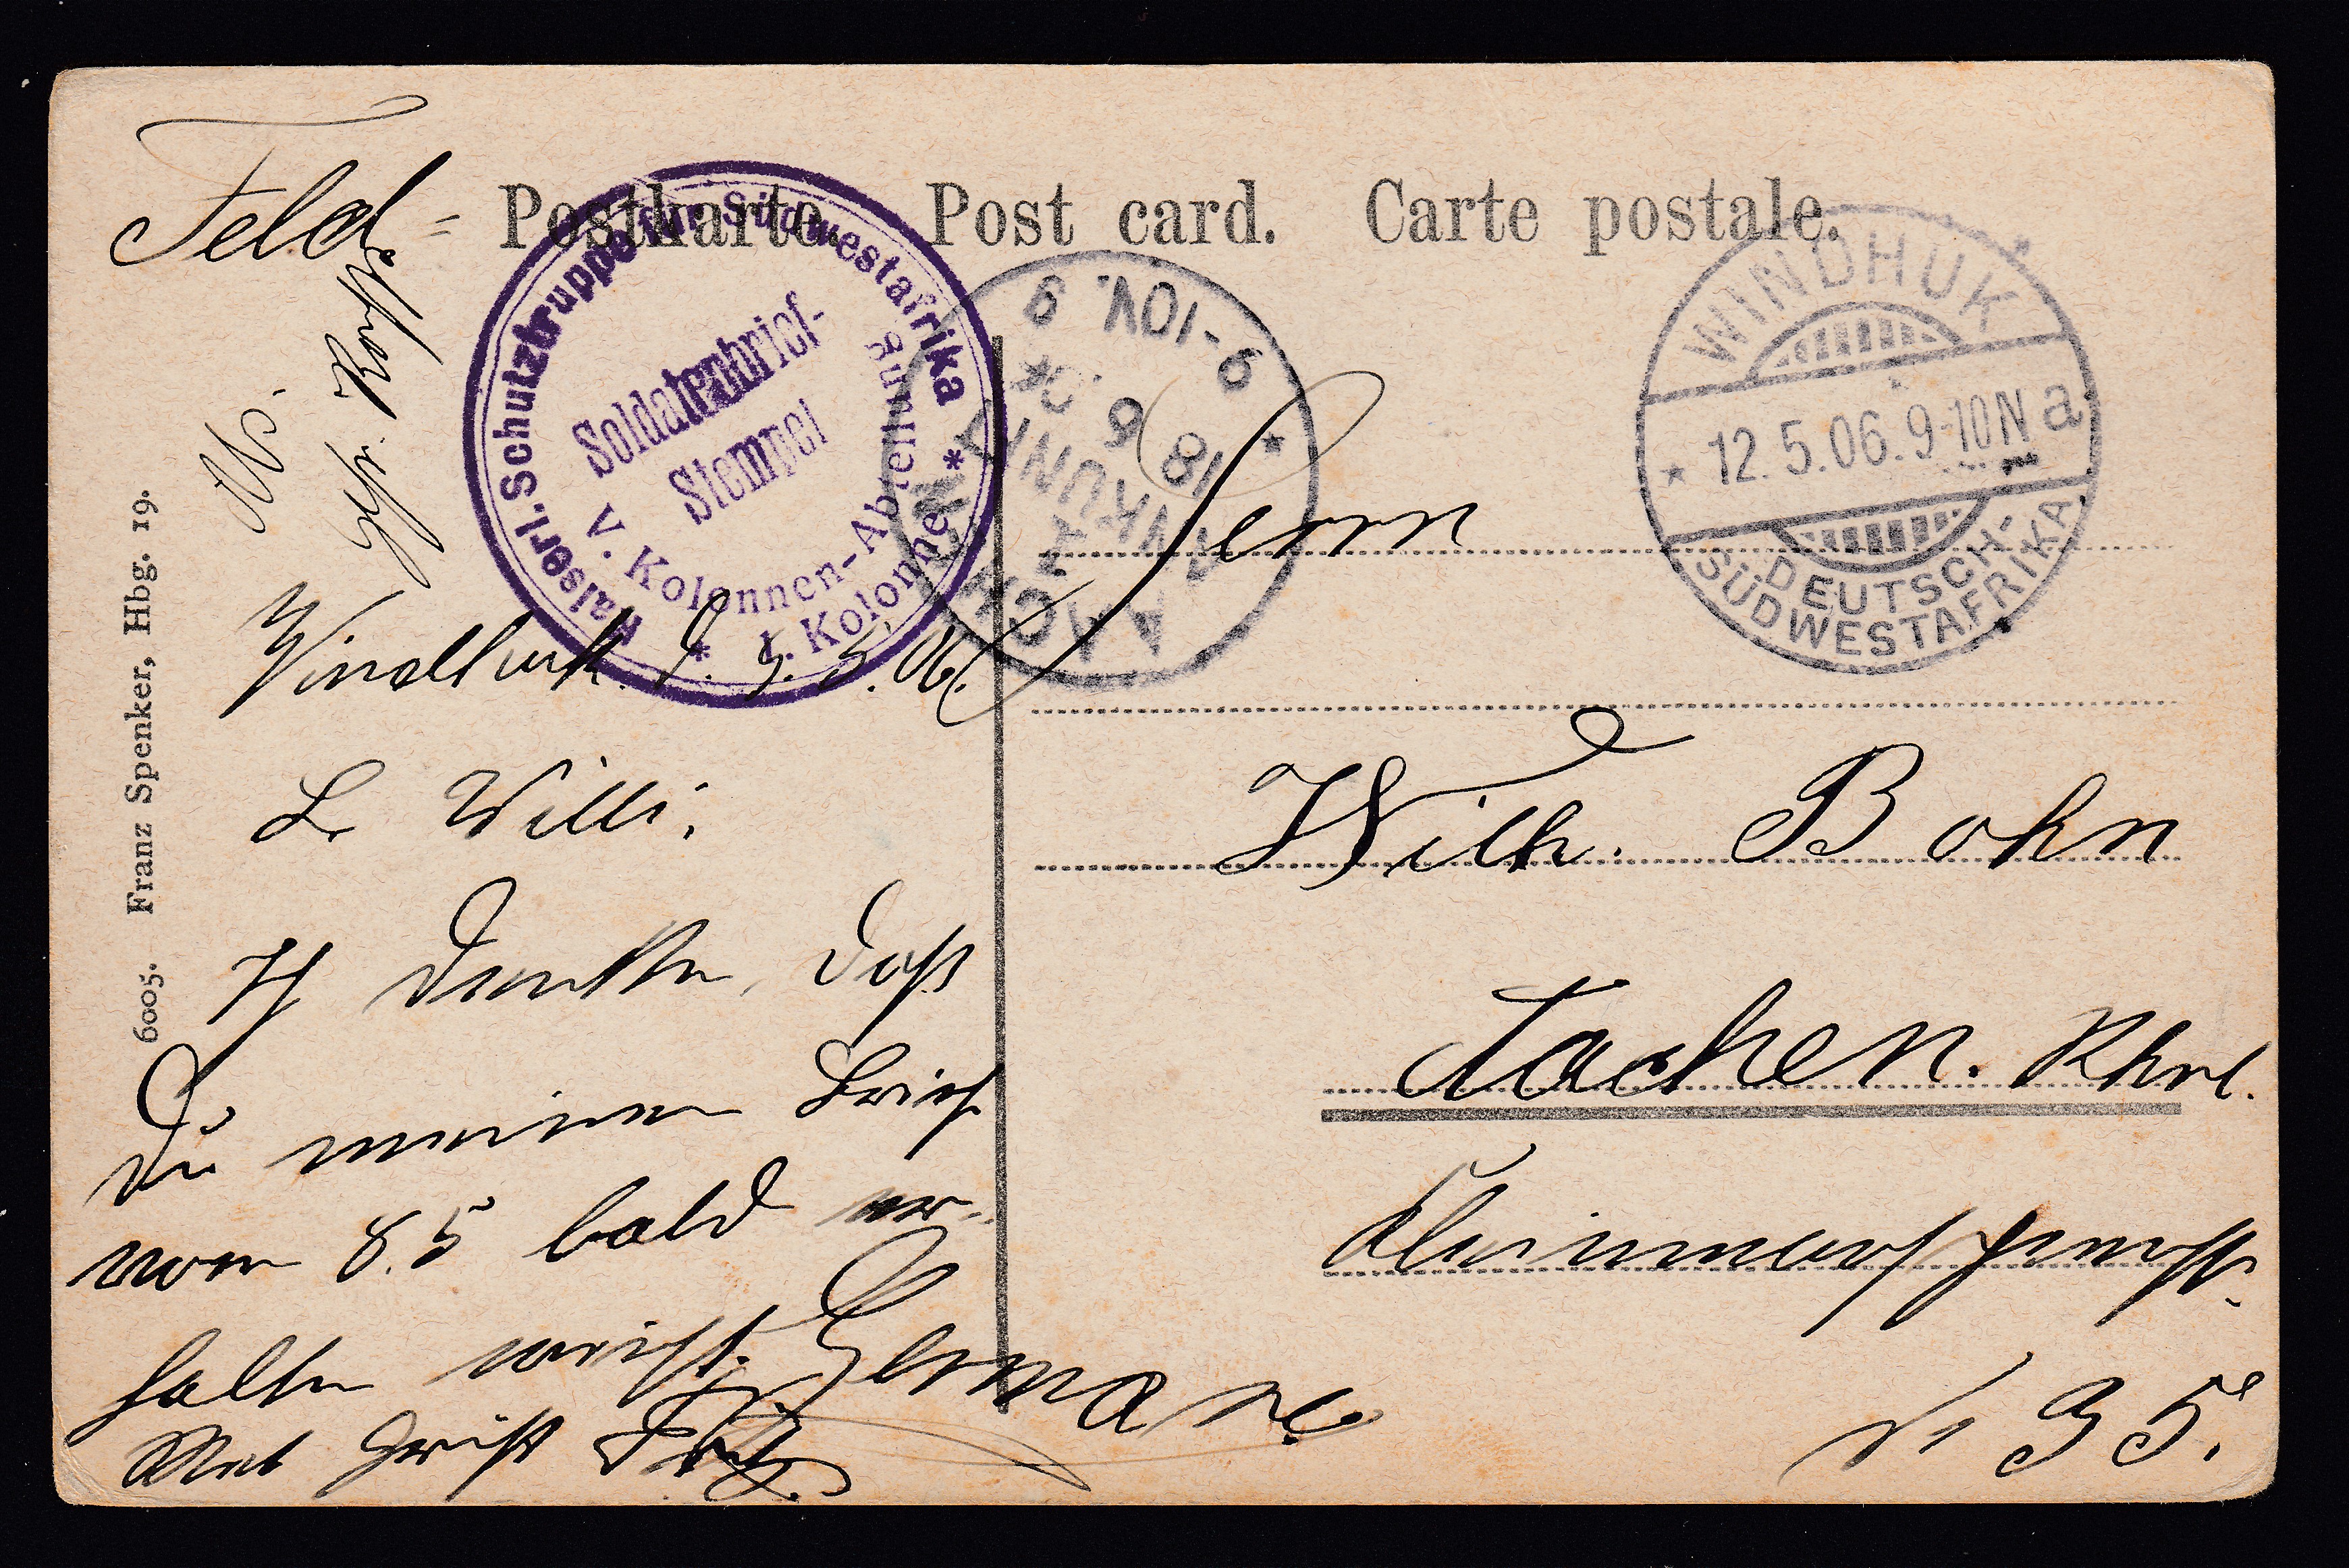 Feld= Postkarte. Post card. Carte postale.
Kaiserl. Schutztruppe für Südwestafrika
Soldatenbrief-
Stempel
V. Kolonnen-Abteilung
* 1. Kolonne *
AACHEN
9-10V.
WINDHUK
* 12.5.06.9-10N a
DEUTSCH-
SÜDWESTAFRIKA
Windhuk. 5.06.
L. Willi!
Ich denke, daß
Du meinen Brief
vom 8.5 bald er-
halten wirst.
Mit Gruß
Herrn
Wilh. Bohn
Aachen. Rhnl.
No 35.
6005. Franz Spenker, Hbg. 19.